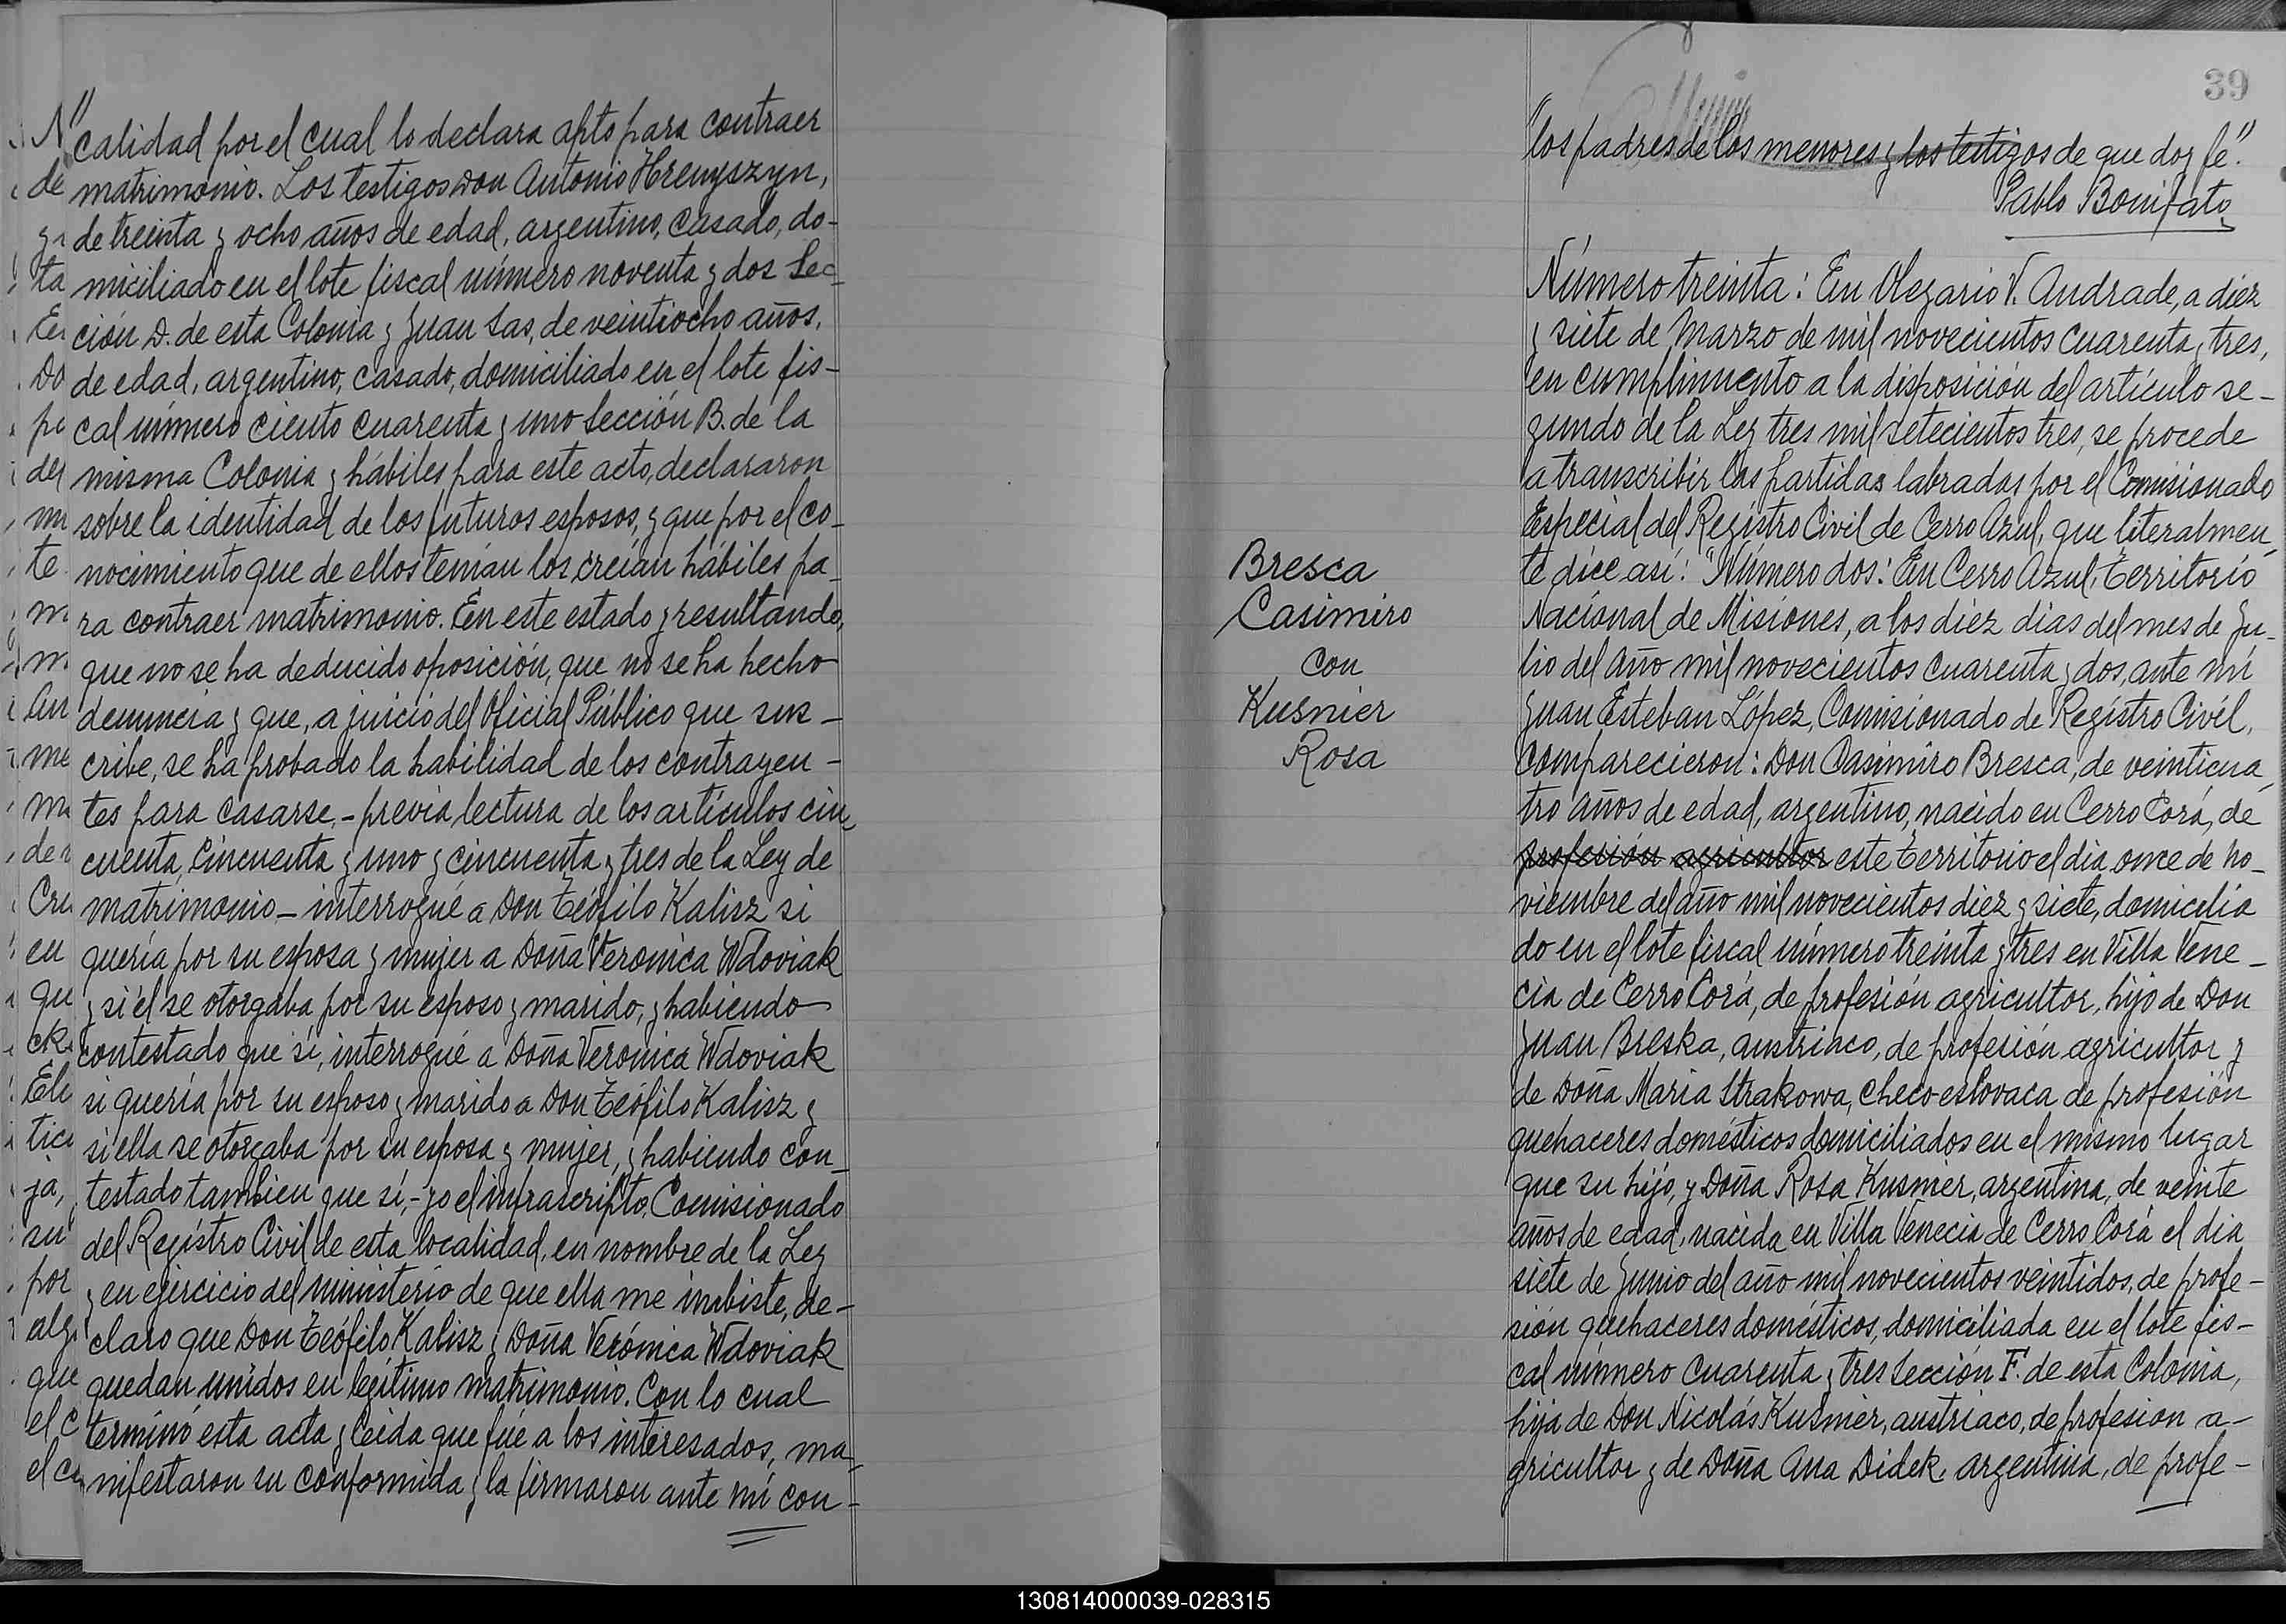 "calidad por el cual lo declara apto para contraer
matrimonio. Los testigos Don Antonio Hrenyszyn,
de treinta y ocho años de edad, argentino, casado, do-
miciliado en el lote fiscal número noventa y dos Sec-
ción D. de esta Colonia y Juan Sas, de veintiocho años,
de edad, argentino, casado, domiciliado en el lote fis-
cal número ciento cuarenta y uno Sección B. de la
misma Colonia y hábiles para este acto, declararon
sobre la identidad de los futuros esposos, y que por el co-
nocimiento que de ellos tenían los creían hábiles pa-
ra contraer matrimonio. En este estado y resultando,
que no se ha deducido oposición, que no se ha hecho
denuncia y que, a juicio del Oficial Público que sus-
cribe, se ha probado la habilidad de los contrayen-
tes para casarse,- previa lectura de los artículos cin-
cuenta, cincuenta y uno y cincuenta y tres de la Ley de
matrimonio - interrogué a Don Teófilo Kalisz si
quería por su esposa y mujer a Doña Veronica Wdoviak
y si él se otorgaba por su esposo y marido, y habiendo
contestado que sí, interrogué a Doña Veronica Wdoviak
si quería por su esposo y marido a Don Teófilo Kalisz y
si ella se otorgaba por su esposa y mujer, y habiendo con-
testado tambien que sí,- yo el infrascripto, Comisionado
del Registro Civil de esta localidad, en nombre de la Ley
y en ejercicio del ministerio de que ella me inbiste, de-
claro que Don Teófilo Kalisz y Doña Verónica Wdoviak
quedan unidos en legítimo matrimonio. Con lo cual
terminó esta acta y leída que fué a los interesados, ma-
nifestaron su conformida y la firmaron ante mí con-
39
"los padres de los menores y los testigos de que doy fé".
Pablo Bonifato
Bresca
Casimiro
con
Kusnier
Rosa
Número treinta: En Olegario V. Andrade, a diez
y siete de Marzo de mil novecientos cuarenta y tres,
en cumplimiento a la disposición del artículo se-
gundo de la Ley tres mil setecientos tres, se procede
a transcribir las partidas labradas por el Comisionado
Especial del Registro Civil de Cerro Azul, que literalmen-
te dice así: "Número dos: En Cerro Azul, Territorio
Nacional de Misiones, a los diez dias del mes de Ju-
lio del año mil novecientos cuarenta y dos, ante mí
Juan Esteban López, Comisionado de Registro Civil,
comparecieron: Don Casimiro Bresca, de veinticua-
tro años de edad, argentino, nacido en Cerro Corá, de
profesión agricultor este Territorio el dia once de no-
viembre del año mil novecientos diez y siete, domicilia
do en el lote fiscal número treinta y tres en Villa Vene-
cia de Cerro Corá, de profesión agricultor, hijo de Don
Juan Breska, austriaco, de profesión agricultor y
de Doña Maria Strakowa, checoeslovaca de profesión
quehaceres domésticos domiciliados en el mismo lugar
que su hijo, y Doña Rosa Kusnier, argentina, de veinte
años de edad, nacida en Villa Venecia de Cerro Corá el dia
siete de Junio del año mil novecientos veintidos, de profe-
sión quehaceres domésticos, domiciliada en el lote fis-
cal número cuarenta y tres Sección F. de esta Colonia,
hija de Don Nicolás Kusnier, austriaco, de profesion a-
gricultor y de Doña Ana Didek, argentina, de profe-
130814000039-028315